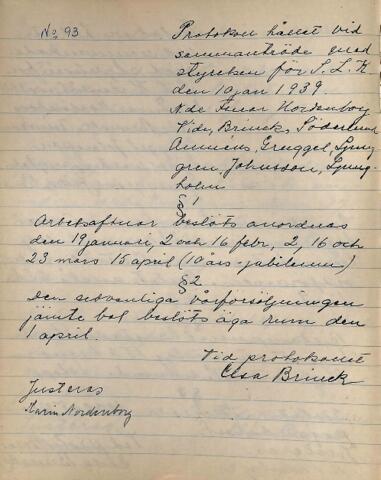 No 93
Protokoll hållet vid
sammanträde med
styrelsen för S. L. K.
den 10 jan 1939.
N.de Fruar Nordenborg
Vidu, Brinck, Söderlund
Grenggel, Ljung-
gren, Johnsson, Ljung-
holm
§ 1
Arbetsaftnar beslöts anordnas
den 19 januari, 2 och 16 febr, 2, 16 och
23 mars 15 april (10 års-jubileum)
§ 2
Den sedvanliga vårförsäljningen
jämte bal beslöts äga rum den
1 april.
Vid protokollet
Elsa Brinck
Justeras
Karin Nordenborg